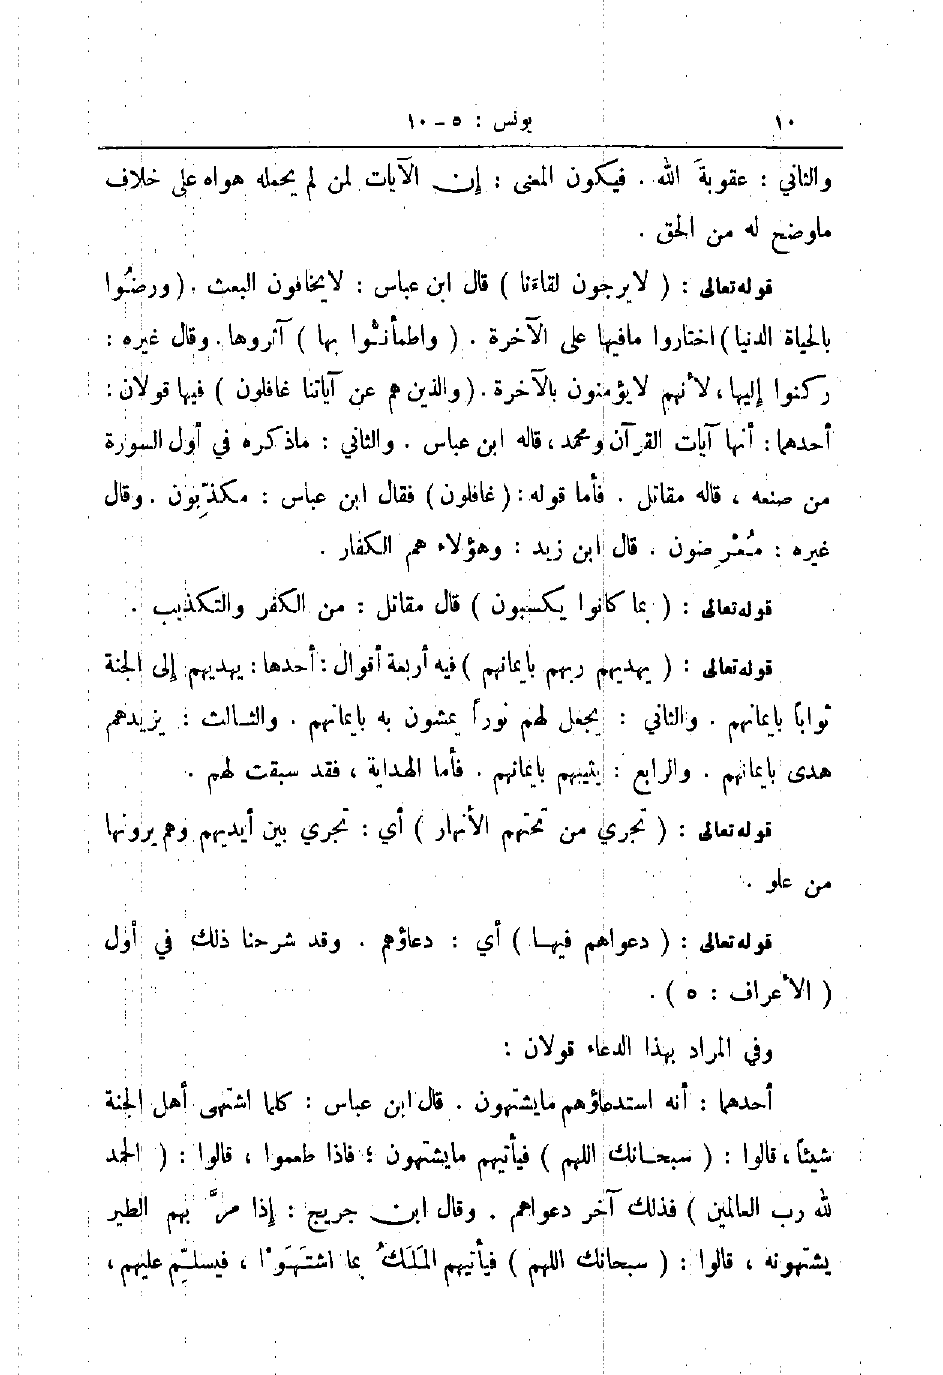 ١٠
يونس : ٥ – ١٠
والثاني : عقوبةَ الله . فيكون المعنى : إن الآيات لمن لم يحمله هواه على خلاف
ماوضح له من الحق .
قوله تعالى : ( لايرجون لقاءَنا ) قال ابن عباس : لايخافون البعث . ( ورضُوا
بالحياة الدنيا ) اختاروا مافيها على الآخرة . ( واطمأنُّوا بها ) آثروها . وقال غيره :
ركنوا إليها ، لأنهم لايؤمنون بالآخرة . ( والذين هم عن آياتنا غافلون ) فيها قولان :
أحدهما : أنها آيات القرآن ومحمد ، قاله ابن عباس . والثاني : ماذكره في أول السورة
من صنعه ، قاله مقاتل . فأما قوله : ( غافلون ) فقال ابن عباس : مكذِّبون . وقال
غيره : مُعْرِضون . قال ابن زيد : وهؤلاء هم الكفار .
قوله تعالى : ( بما كانوا يكسبون ) قال مقاتل : من الكفر والتكذيب .
قوله تعالى : ( يهديهم ربهم بإيمانهم ) فيه أربعة أقوال : أحدها : يهديهم إلى الجنة
ثواباً بإيمانهم . والثاني : يجعل لهم نوراً يمشون به بإيمانهم . والثالث : يزيدهم
هدى بإيمانهم . والرابع : يثيبهم بإيمانهم . فأما الهداية ، فقد سبقت لهم .
قوله تعالى : ( تجري من تحتهم الأنهار ) أي : تجري بين أيديهم وهم يرونها
من علو .
قوله تعالى : ( دعواهم فيها ) أي : دعاؤهم . وقد شرحنا ذلك في أول
( الأعراف : ٥ ) .
وفي المراد بهذا الدعاء قولان :
أحدهما : أنه استدعاؤهم مايشتهون . قال ابن عباس : كلما اشتهى أهل الجنة
شيئاً ، قالوا : ( سبحانك اللهم ) فيأتيهم مايشتهون ؛ فاذا طعموا ، قالوا : ( الحمد
لله رب العالمين ) فذلك آخر دعواهم . وقال ابن جريج : إذا مرَّ بهم الطير
يشتهونه ، قالوا : ( سبحانك اللهم ) فيأتيهم المَلَكُ بما اشتَهَوْا ، فيسلِّم عليهم ،